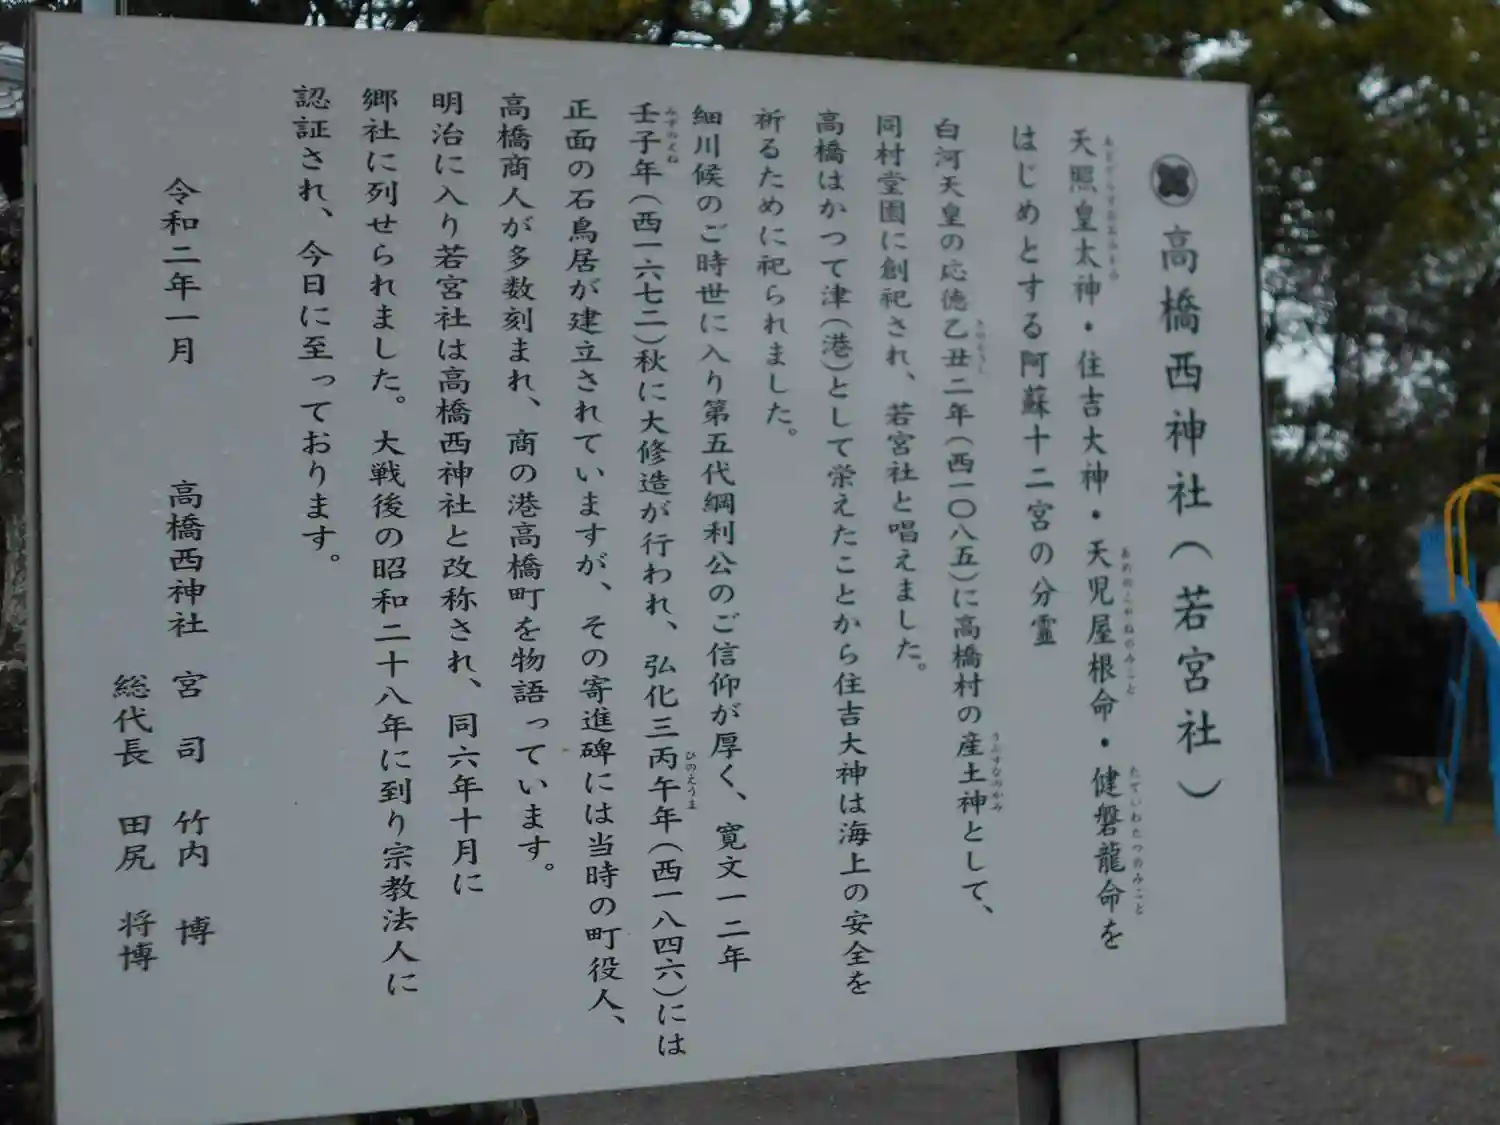 高橋西神社（若宮社）
天照皇太神・住吉大神・天児屋根命・健磐龍命を
はじめとする阿蘇十二宮の分霊
白河天皇の応徳乙丑二年（西一〇八五）に高橋村の産土神として、
同村堂園に創祀され、若宮社と唱えました。
高橋はかつて津（港）として栄えたことから住吉大神は海上の安全を
祈るために祀られました。
細川候のご時世に入り第五代綱利公のご信仰が厚く、寛文一二年
壬子年（西一六七二）秋に大修造が行われ、弘化三丙午年（西一八四六）には
正面の石鳥居が建立されていますが、その寄進碑には当時の町役人、
高橋商人が多数刻まれ、商の港高橋町を物語っています。
明治に入り若宮社は高橋西神社と改称され、同六年十月に
郷社に列せられました。大戦後の昭和二十八年に到り宗教法人に
認証され、今日に至っております。
令和二年一月
高橋西神社 宮司 竹内 博
総代長 田尻 将博